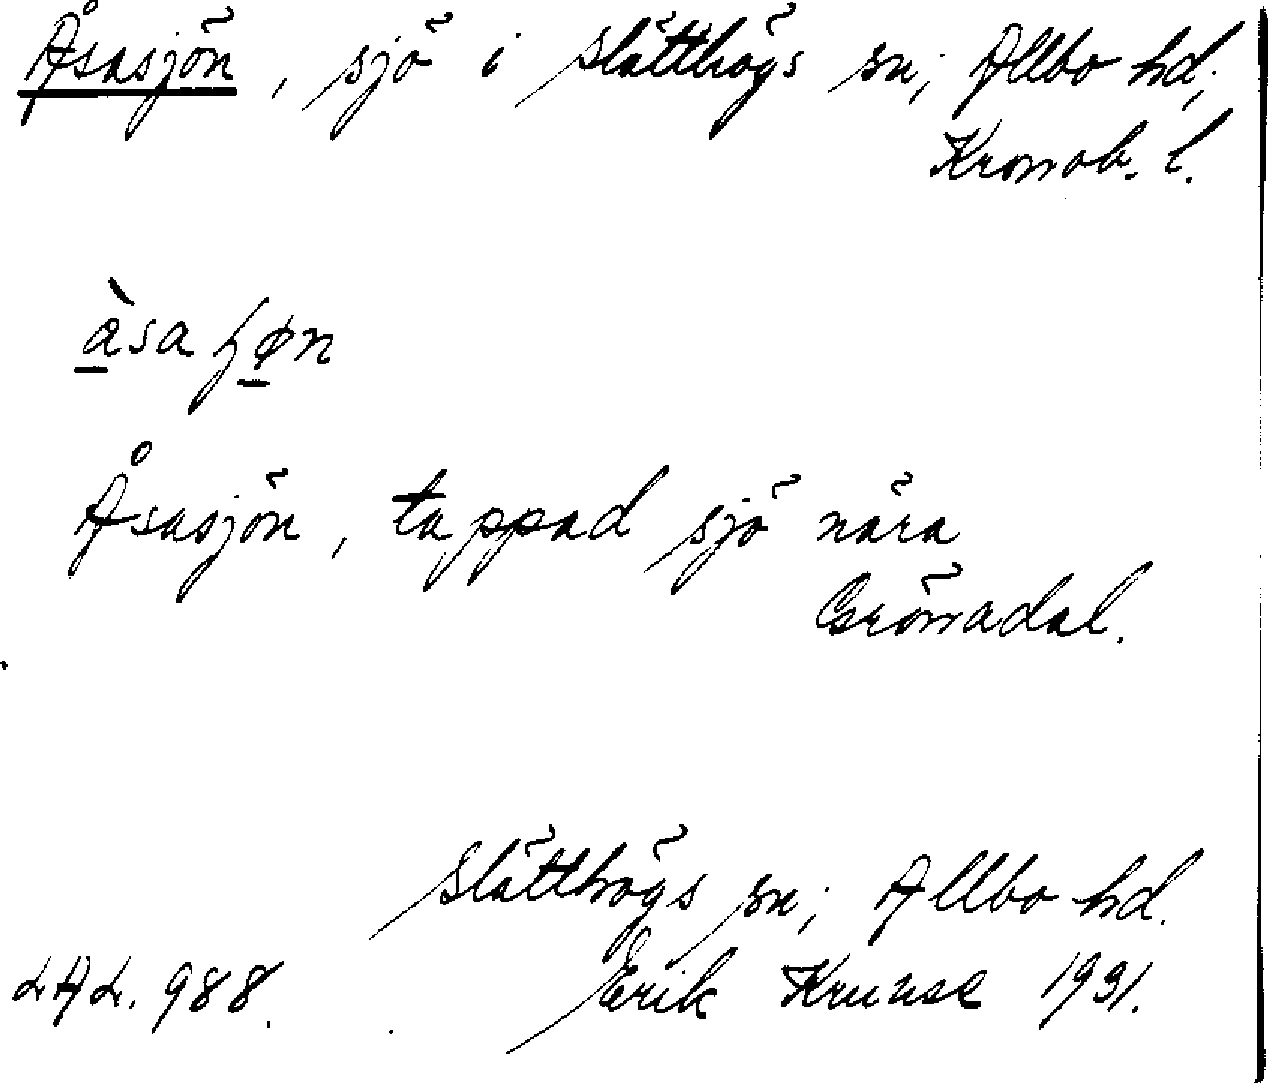 Åsasjön, sjö i Slätthögs sn; Allbo hd;
Kronob. l.
à̲sa ɧø̲n
Åsasjön, tappad sjö nära
Grönadal.
Slätthögs sn; Allbo hd.
LAL. 988. Erik Krunse 1931.